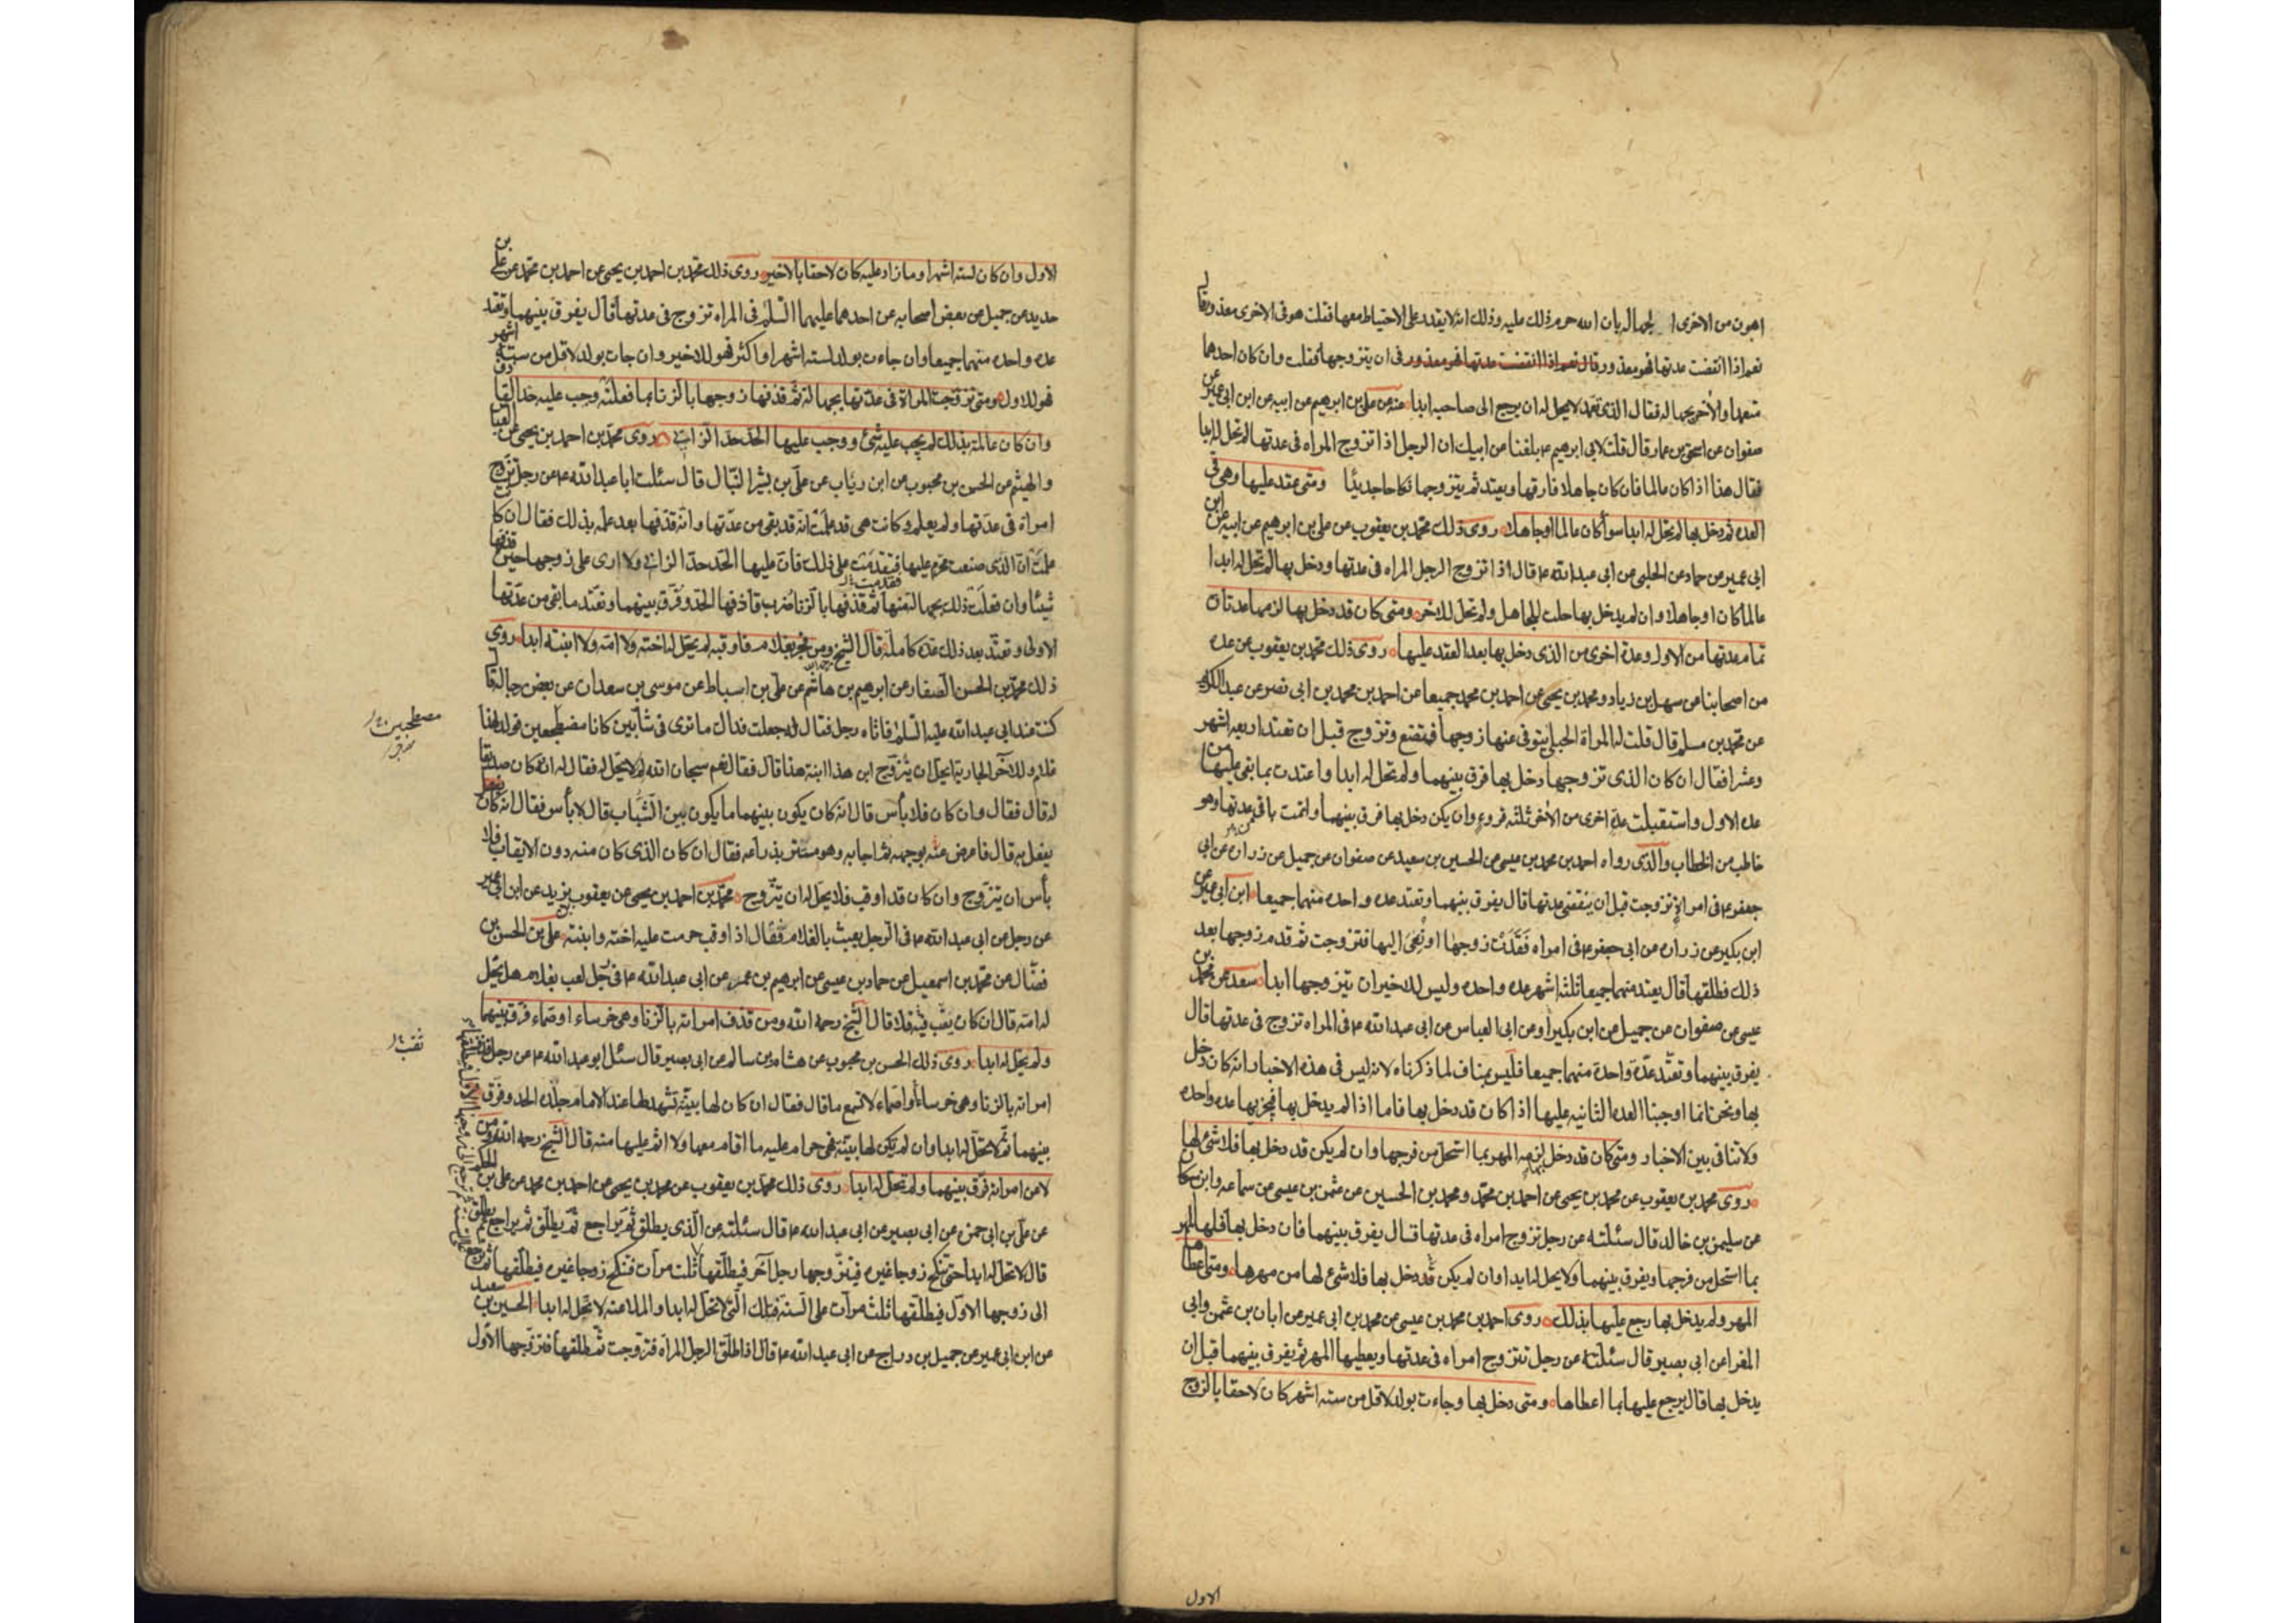 اهون من الاخرى الجهالة بان الله حرم ذلك عليه وذلك انه لا يقدر على الاحتياط معها فقلت هو في الاخرى معذور قال
نعم اذا انقضت عدتها فهو معذور وقال نعم اذا انقضت عدتها فهو معذور في ان يتزوجها فقلت وان كان احدهما
متعمدا والآخر بجهاله فقال الذي تعمد لا يحل له ان يرجع الى صاحبه ابدا عنه عن علي بن ابرهيم عن ابيه عن ابن ابي عمير عن
صفوان عن اسحق بن عمار قال قلت لابي ابرهيم ع بلغنا عن ابيك ان الرجل اذا تزوج المراه في عدتها لم تحل له ابدا
فقال هذا اذا كان عالما فان كان جاهلا فارقها ويعتد ثم يتزوجها نكاحا جديدا ومتى عقد عليها وهي في
العده ثم دخل بها لم تحل له ابدا سوأ كان عالما او جاهلا روى ذلك محمد بن يعقوب عن علي بن ابرهيم عن ابيه عن ابن
ابي عمير عن حماد عن الحلبي عن ابي عبد الله ع قال اذا تزوج الرجل المراه في عدتها ودخل بها لم تحل له ابدا
عالما كان او جاهلا وان لم يدخل بها حلت للجاهل ولم تحل للاخر ومتى كان قد دخل بها لزمها عدتان
تمام عدتها من الاول وعدة اخرى من الذى دخل بها بعد العقد عليها روى ذلك محمد بن يعقوب عن عده
من اصحابنا عن سهل بن زياد ومحمد بن يحيى عن احمد بن محمد جميعا عن احمد بن محمد بن ابي نصر عن عبد الكريم
عن محمد بن مسلم قال قلت له المراة الحبلى يتوفى عنها زوجها فتضع وتزوج قبل ان تعتد اربعه اشهر
وعشرا فقال ان كان الذى تزوجها دخل بها فرق بينهما ولم تحل له ابدا واعتدت بما بقي عليها من
عده الاول واستقبلت عدة اخرى من الآخر ثلثه قروء وان لم يكن دخل بها فرق بينهما واتمت باقي عدتها وهو
خاطب من الخطاب والذى رواه احمد بن محمد بن عيسى عن الحسين بن سعيد عن صفوان عن جميل عن زراره عن ابي
جعفر ع في امراة تزوجت قبل ان ينقضي عدتها قال يفرق بينهما وتعتد عده واحده منهما جميعا ابن ابي عمير عن
ابن بكير عن زراره عن ابي جعفر ع في امراه فقدت زوجها او نعي اليها فتزوجت ثم قدم زوجها بعد
ذلك فطلقها قال يعتد منهما جميعا ثلثه اشهر عده واحده وليس للاخير ان يتزوجها ابدا سعد عن محمد بن
عيسى عن صفوان عن جميل عن ابن بكير او عن ابي العباس عن ابي عبد الله ع في المراه تزوج في عدتها قال
يفرق بينهما وتعتد عدة واحدة منهما جميعا فليس بمناف لما ذكرناه لانه ليس في هذه الاخبار انه كان دخل
بها ونحن انما اوجبنا العده الثانيه عليها اذا كان قد دخل بها فاما اذا لم يدخل بها فيجزيها عده واحده
ولا تنافى بين الاخبار ومتى كان قد دخل لزمه المهر بما استحل من فرجها وان لم يكن قد دخل بها فلا شئ لها
روى محمد بن يعقوب عن محمد بن يحيى عن احمد بن محمد ومحمد بن الحسين عن عثمن بن عيسى عن سماعه وابن مسكان
عن سليمن بن خالد قال سئلته عن رجل تزوج امراه في عدتها قال يفرق بينهما فان دخل بها فلها المهر
بما استحل من فرجها ويفرق بينهما ولا يحل له ابدا وان لم يكن قد دخل بها فلا شئ لها من مهرها ومتى اعطاها
المهر ولم يدخل بها رجع عليها بذلك روى احمد بن محمد بن عيسى عن محمد بن ابي عمير عن ابان بن عثمن وابي
المغرا عن ابي بصير قال سئلته عن رجل تتزوج امراه في عدتها ويعطيها المهر ثم يفرق بينهما قبل ان
يدخل بها قال يرجع عليها بما اعطاها ومتى دخل بها وجاءت بولد لاقل من سته اشهر كان لاحقا بالزوج
الاول
الاول وان كان لسته اشهر او ما زاد عليه كان لاحقا بالاخير روى ذلك محمد بن احمد بن يحيى عن احمد بن محمد عن علي بن
حديد عن جميل عن بعض اصحابه عن احدهما عليهما السلم في المراه تزوج في عدتها قال يفرق بينهما وتعتد
عده واحده منهما جميعا وان جاءت بولد لسته اشهر او اكثر فهو للاخير وان جات بولد لاقل من ستة اشهر
فهو للاول ومتى تزوجت المراة في عدتها بجهالة ثم قذفها زوجها بالزنا بما فعلته وجب عليه حد القاذف
وان كان عالمة بذلك لم يجب عليه شئ ووجب عليها الحد حد الزانى روى محمد بن احمد بن يحيى عن العباس
والهيثم عن الحسن بن محبوب عن ابن رياب عن علي بن بشر النبال قال سئلت ابا عبد الله ع عن رجل تزوج
امراة في عدتها ولم يعلم وكانت هي قد علمت انه قد بقي من عدتها وانه قذفها بعد علمه بذلك فقال ان كانت
علمت ان الذى صنعت محرم عليها فقدمت على ذلك فان عليها الحد حد الزانى ولا ارى على زوجها حين قذفها
شيئا وان فعلت ذلك بجهالة منها ثم قذفها بالزنا ضرب قاذفها الحد وفرق بينهما وتعتد ما بقى من عدتها
الاولى وتعتد بعد ذلك عدة كاملة قال الشيخ ومن فجر بغلام فاوقبه لم يحل له اخته ولا امه ولا ابنته ابدا روى
ذلك محمد بن الحسن الصفار عن ابرهيم بن هاشم عن علي بن اسباط عن موسى بن سعدان عن بعض رجاله قال
كنت عند ابي عبد الله عليه السلم فاتاه رجل فقال له جعلت فداك ما ترى في شابين كانا مضطجعين فولد لهذا
غلام وللآخر الجارية ايحل ان يتزوج ابن هذا ابنة هذا قال فقال نعم سبحان الله لم لا يحل له فقال له انه كان صديقا
له قال فقال وان كان فلا بأس قال انه كان يكون بينهما ما يكون بين الشباب قال لا بأس فقال انه كان
يفعل به قال فاعرض عنه بوجهه ثم اجابه وهو مستتر بذراعه فقال ان كان الذى كان منه دون الايقاب فلا
بأس ان يتزوج وان كان قد اوقب فلا يحل له ان يتزوج محمد بن احمد بن يحيى عن يعقوب بن يزيد عن ابن ابي عمير
عن رجل عن ابي عبد الله ع في الرجل يعبث بالغلام فقال اذا اوقب حرمت عليه اخته وابنته علي بن الحسن بن
فضال عن محمد بن اسمعيل عن حماد بن عيسى عن ابرهيم بن عمر عن ابي عبد الله ع في رجل لعب بغلام هل يحل
له امه قال ان كان ثقب فيه فلا قال الشيخ رحمه الله ومن قذف امراته بالزنا وهي خرساء او صماء فرق بينهما
ولم يحل له ابدا روى ذلك الحسن بن محبوب عن هشام بن سالم عن ابي بصير قال سئل ابو عبد الله ع عن رجل قذف
امراته بالزنا وهي خرساء او صماء لا تسمع ما قال فقال ان كان لها بينة تشهد لها عند الامام جلده الحد وفرق
بينهما ثم لا تحل له ابدا وان لم يكن لها بينة فهي حرام عليه ما اقام معها ولا اثم عليها منه قال الشيخ رحمه الله ومن
لاعن امراته فرق بينهما ولم تحل له ابدا روى ذلك محمد بن يعقوب عن محمد بن يحيى عن احمد بن محمد عن علي بن الحكم
عن علي بن ابي حمزه عن ابي بصير عن ابي عبد الله ع قال سئلته عن الذى يطلق ثم يراجع ثم يطلق ثم يراجع ثم يطلق
قال لا تحل له ابدا حتى تنكح زوجا غيره فيتزوجها رجل آخر فيطلقها ثلث مرات فتنكح زوجا غيره فيطلقها ثم ترجع
الى زوجها الاول فيطلقها ثلث مرات على السنة فتلك التي لا تحل له ابدا والملاعنه لا تحل له ابدا الحسين بن سعيد
عن ابن ابي عمير عن جميل بن دراج عن ابي عبد الله ع قال اذا طلق الرجل المراة فتزوجت ثم طلقها فتزوجها الاول